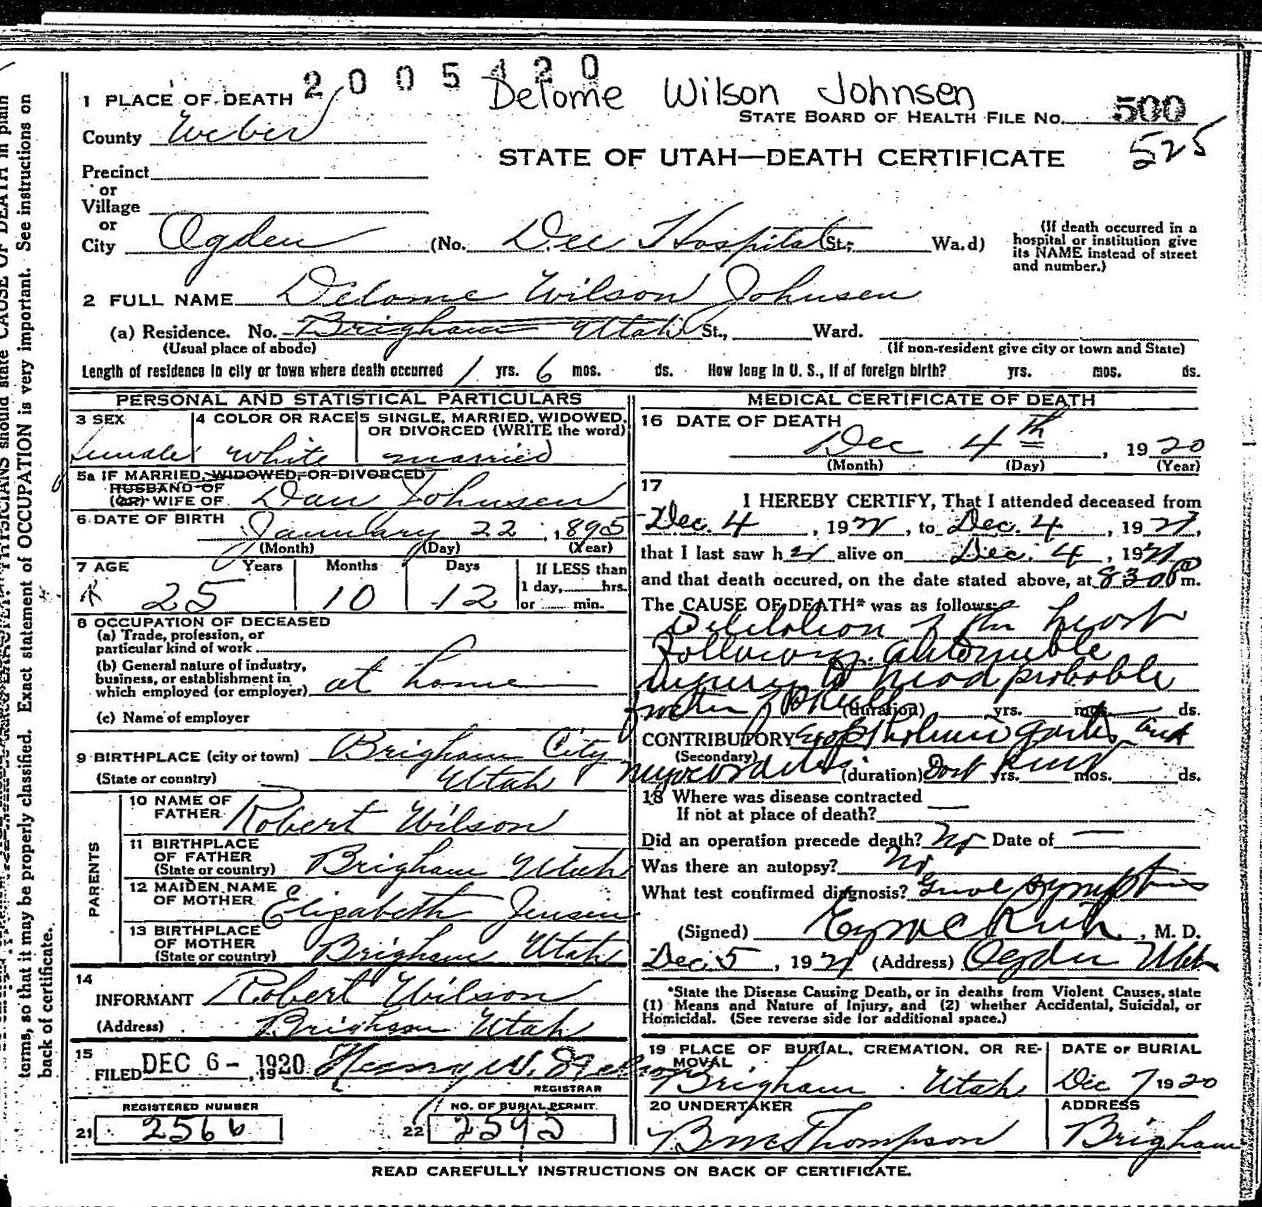 2005420
Delome Wilson Johnsen
1 PLACE OF DEATH
STATE BOARD OF HEALTH FILE No. 500
County Weber
525
STATE OF UTAH—DEATH CERTIFICATE
Precinct
or
Village
or
City Ogden (No. Dee Hospital St.; Wa.d)
(If death occurred in a hospital or institution give its NAME instead of street and number.)
2 FULL NAME Delome Wilson Johnsen
(a) Residence. No. Brigham Utah St., Ward.
(Usual place of abode) (If non-resident give city or town and State)
Length of residence in city or town where death occurred 1 yrs. 6 mos. ds. How long in U. S., if of foreign birth? yrs. mos. ds.
PERSONAL AND STATISTICAL PARTICULARS
3 SEX female
4 COLOR OR RACE white
5 SINGLE, MARRIED, WIDOWED, OR DIVORCED (WRITE the word) married
5a IF MARRIED, WIDOWED, OR DIVORCED
HUSBAND OF
(OR) WIFE OF Dan Johnsen
6 DATE OF BIRTH January 22, 1895
(Month) (Day) (Year)
7 AGE Years Months Days If LESS than
25 10 12 1 day, hrs.
or min.
8 OCCUPATION OF DECEASED
(a) Trade, profession, or
particular kind of work
(b) General nature of industry,
business, or establishment in
which employed (or employer) at home
(c) Name of employer
9 BIRTHPLACE (city or town) Brigham City
(State or country) Utah
PARENTS
10 NAME OF FATHER Robert Wilson
11 BIRTHPLACE OF FATHER (State or country) Brigham Utah
12 MAIDEN NAME OF MOTHER Elizabeth Jensen
13 BIRTHPLACE OF MOTHER (State or country) Brigham Utah
14
INFORMANT Robert Wilson
(Address) Brigham Utah
15
FILED DEC 6 - 1920, 19 Henry W.
REGISTRAR
REGISTERED NUMBER
21 2566
NO. OF BURIAL PERMIT
22 2595
MEDICAL CERTIFICATE OF DEATH
16 DATE OF DEATH
Dec 4th, 1920
(Month) (Day) (Year)
17
I HEREBY CERTIFY, That I attended deceased from
Dec. 4, 192, to Dec. 4, 192,
that I last saw h alive on Dec. 4, 192
and that death occured, on the date stated above, at 8:30 P m.
The CAUSE OF DEATH* was as follows:
Dilitation of the heart
following automobile
injury to head probable
(duration) yrs. mos. ds.
CONTRIBUTORY
(Secondary)
(duration) Dont know yrs. mos. ds.
18 Where was disease contracted
If not at place of death?
Did an operation precede death? No Date of
Was there an autopsy? No
What test confirmed diagnosis? symptoms
(Signed) , M. D.
Dec. 5, 192 (Address) Ogden Utah
*State the Disease Causing Death, or in deaths from Violent Causes, state
(1) Means and Nature of Injury, and (2) whether Accidental, Suicidal, or
Homicidal. (See reverse side for additional space.)
19 PLACE OF BURIAL, CREMATION, OR REMOVAL
Brigham Utah
DATE OF BURIAL
Dec 7 1920
20 UNDERTAKER
B M Thompson
ADDRESS
Brigham
READ CAREFULLY INSTRUCTIONS ON BACK OF CERTIFICATE.
PHYSICIANS should state CAUSE OF DEATH in plain
terms, so that it may be properly classified. Exact statement of OCCUPATION is very important. See instructions on
back of certificate.